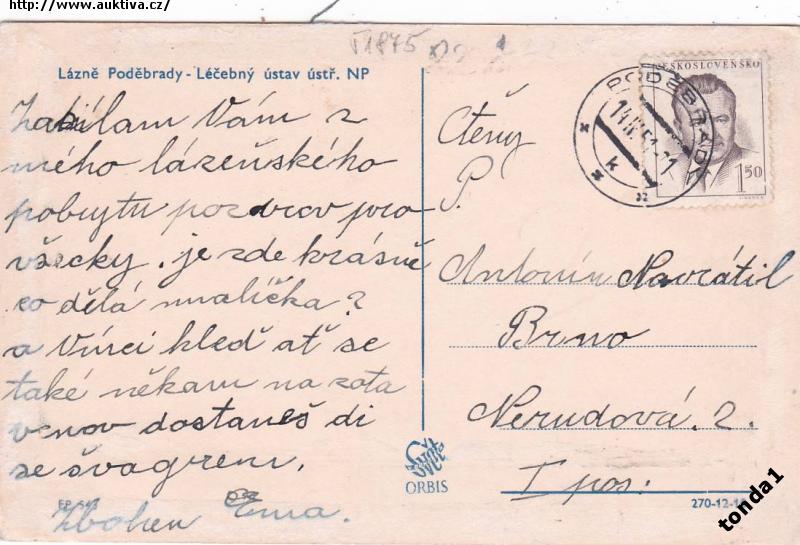 http://www.auktiva.cz/
Γ1875
Lázně Poděbrady - Léčebný ústav ústř. NP
ČESKOSLOVENSKO
1,50
PODĚBRADY
k
Zasílam Vám z
mého lázeňského
pobytu pozdrav pro
všecky. je zde krásně
co dělá malička?
a Vinci kleď ať se
také někam na zota
venov dostaneš di
se švagrem.
Zbohen Ema.
Čtěny
P.
Antonín Navrátil
Brno
Nerudová. 2.
I pos:
ORBIS
270-12-1
tonda1